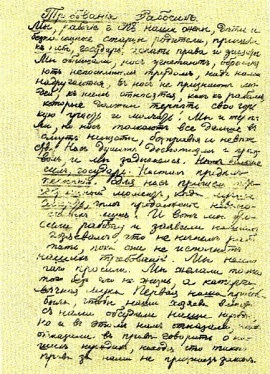 Требования Рабочих
Мы, рабочие г. наши жены, дети и
старцы родители, пришли
к тебе, государь, искать правды и защиты.
Мы обнищали, нас угнетают, обреме-
няют непосильным трудом, над нами
надругаются, в нас не признают лю-
дей, к нам относятся, как к рабам,
которые должны терпеть свою горь-
кую участь и молчать. Мы и терпе-
ли, но нас толкают все дальше в
омут нищеты, бесправия и невеже-
ства. Нас душит деспотизм и произ-
вол и мы задыхаемся. Нет больше
сил, государь. Настал предел
терпению. Для нас пришел
момент, когда
продолжение невыно-
симых мук. И вот мы бро-
сили работу и заявили нашим
хозяевам что не начнем рабо-
тать, пока они не исполнят
наших требований. Мы немно-
го просили. Мы желали только
того без чего не жизнь, а каторга
вечная мука. Первая наша просьба
была, чтобы наши хозяева вместе
с нами обсудили наши нужды
но и в этом нам отказали, нам
отказали в праве говорить о на-
ших нуждах, находя, что такого
права за нами не признает закон.